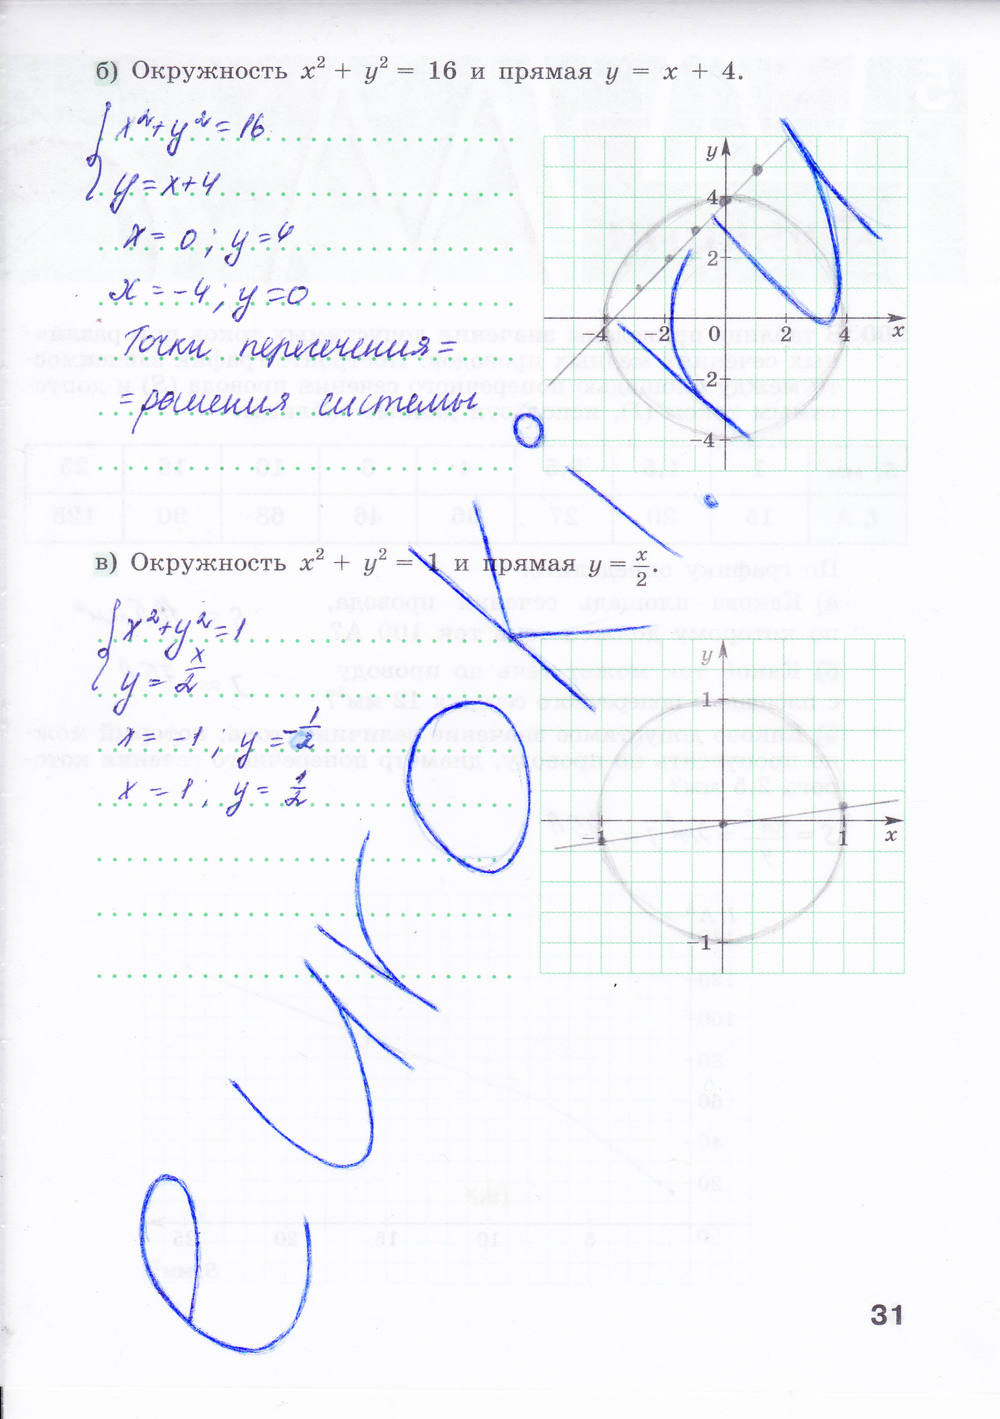 б) Окружность x² + y² = 16 и прямая y = x + 4.
x²+y²=16
y=x+4
x=0; y=4
x=-4; y=0
Точки пересечения=
=решения системы
y
4
2
-4 -2 0 2 4 x
-2
-4
в) Окружность x² + y² = 1 и прямая y = x/2.
x²+y²=1
y=x/2
x=-1, y=-1/2
x=1; y=1/2
y
1
-1 1 x
-1
31